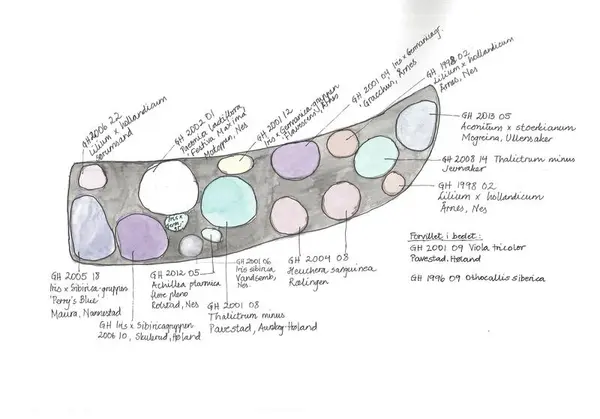 GH 2006 22
Lilium x hollandicum
Sørumsand
GH 2002 01
Paeonia lactiflora
'Festiva Maxima'
Nes
GH 2001 12
Iris x Germanica-gruppen
'Flavescens', Årnes
GH 2001 04 Iris x Germanicagr.
'Gracchus', Årnes
GH 1998 02
Lilium x hollandicum
Årnes, Nes
GH 2013 05
Aconitum x stoerkianum
Mogreina, Ullensaker
GH 2008 14 Thalictrum minus
Jevnaker
GH 1998 02
Lilium x hollandicum
Årnes, Nes
Forvillet i bedet:
GH 2001 09 Viola tricolor
Pavestad, Høland
GH 1996 09 Othocallis siberica
GH 2004 08
Heuchera sanguinea
Rælingen
GH 2001 06
Iris sibirica
Nes
GH 2001 08
Thalictrum minus
Pavestad, Aurskog-Høland
GH 2012 05
Achillea ptarmica
flore pleno
Nes
GH 2005 18
Iris x Sibirica-gruppen
'Perry's Blue'
Maura, Nannestad
GH Iris x Sibiricagruppen
2006 10, Skulerud, Høland